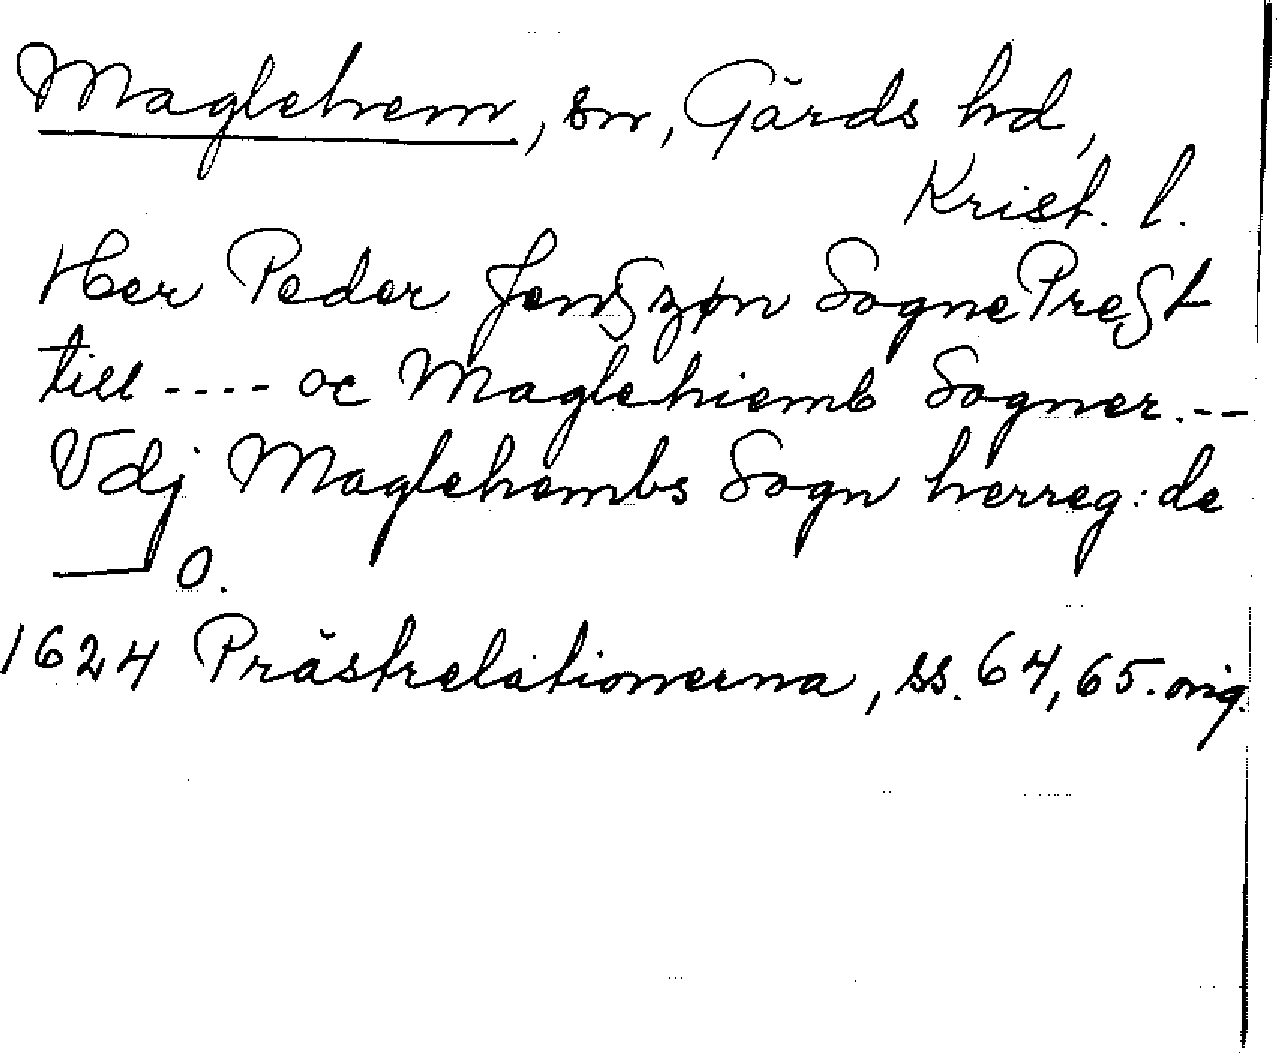 Maglehem, sn, Gärds hd,
Krist. l.
Her Peder Jenszøn SognePrest
till ---- oc Maglehiemb Sogner.--
Vdj Maglehembs Sogn herreg:de
O.
1624 Prästrelationerna, ss. 64, 65. orig.